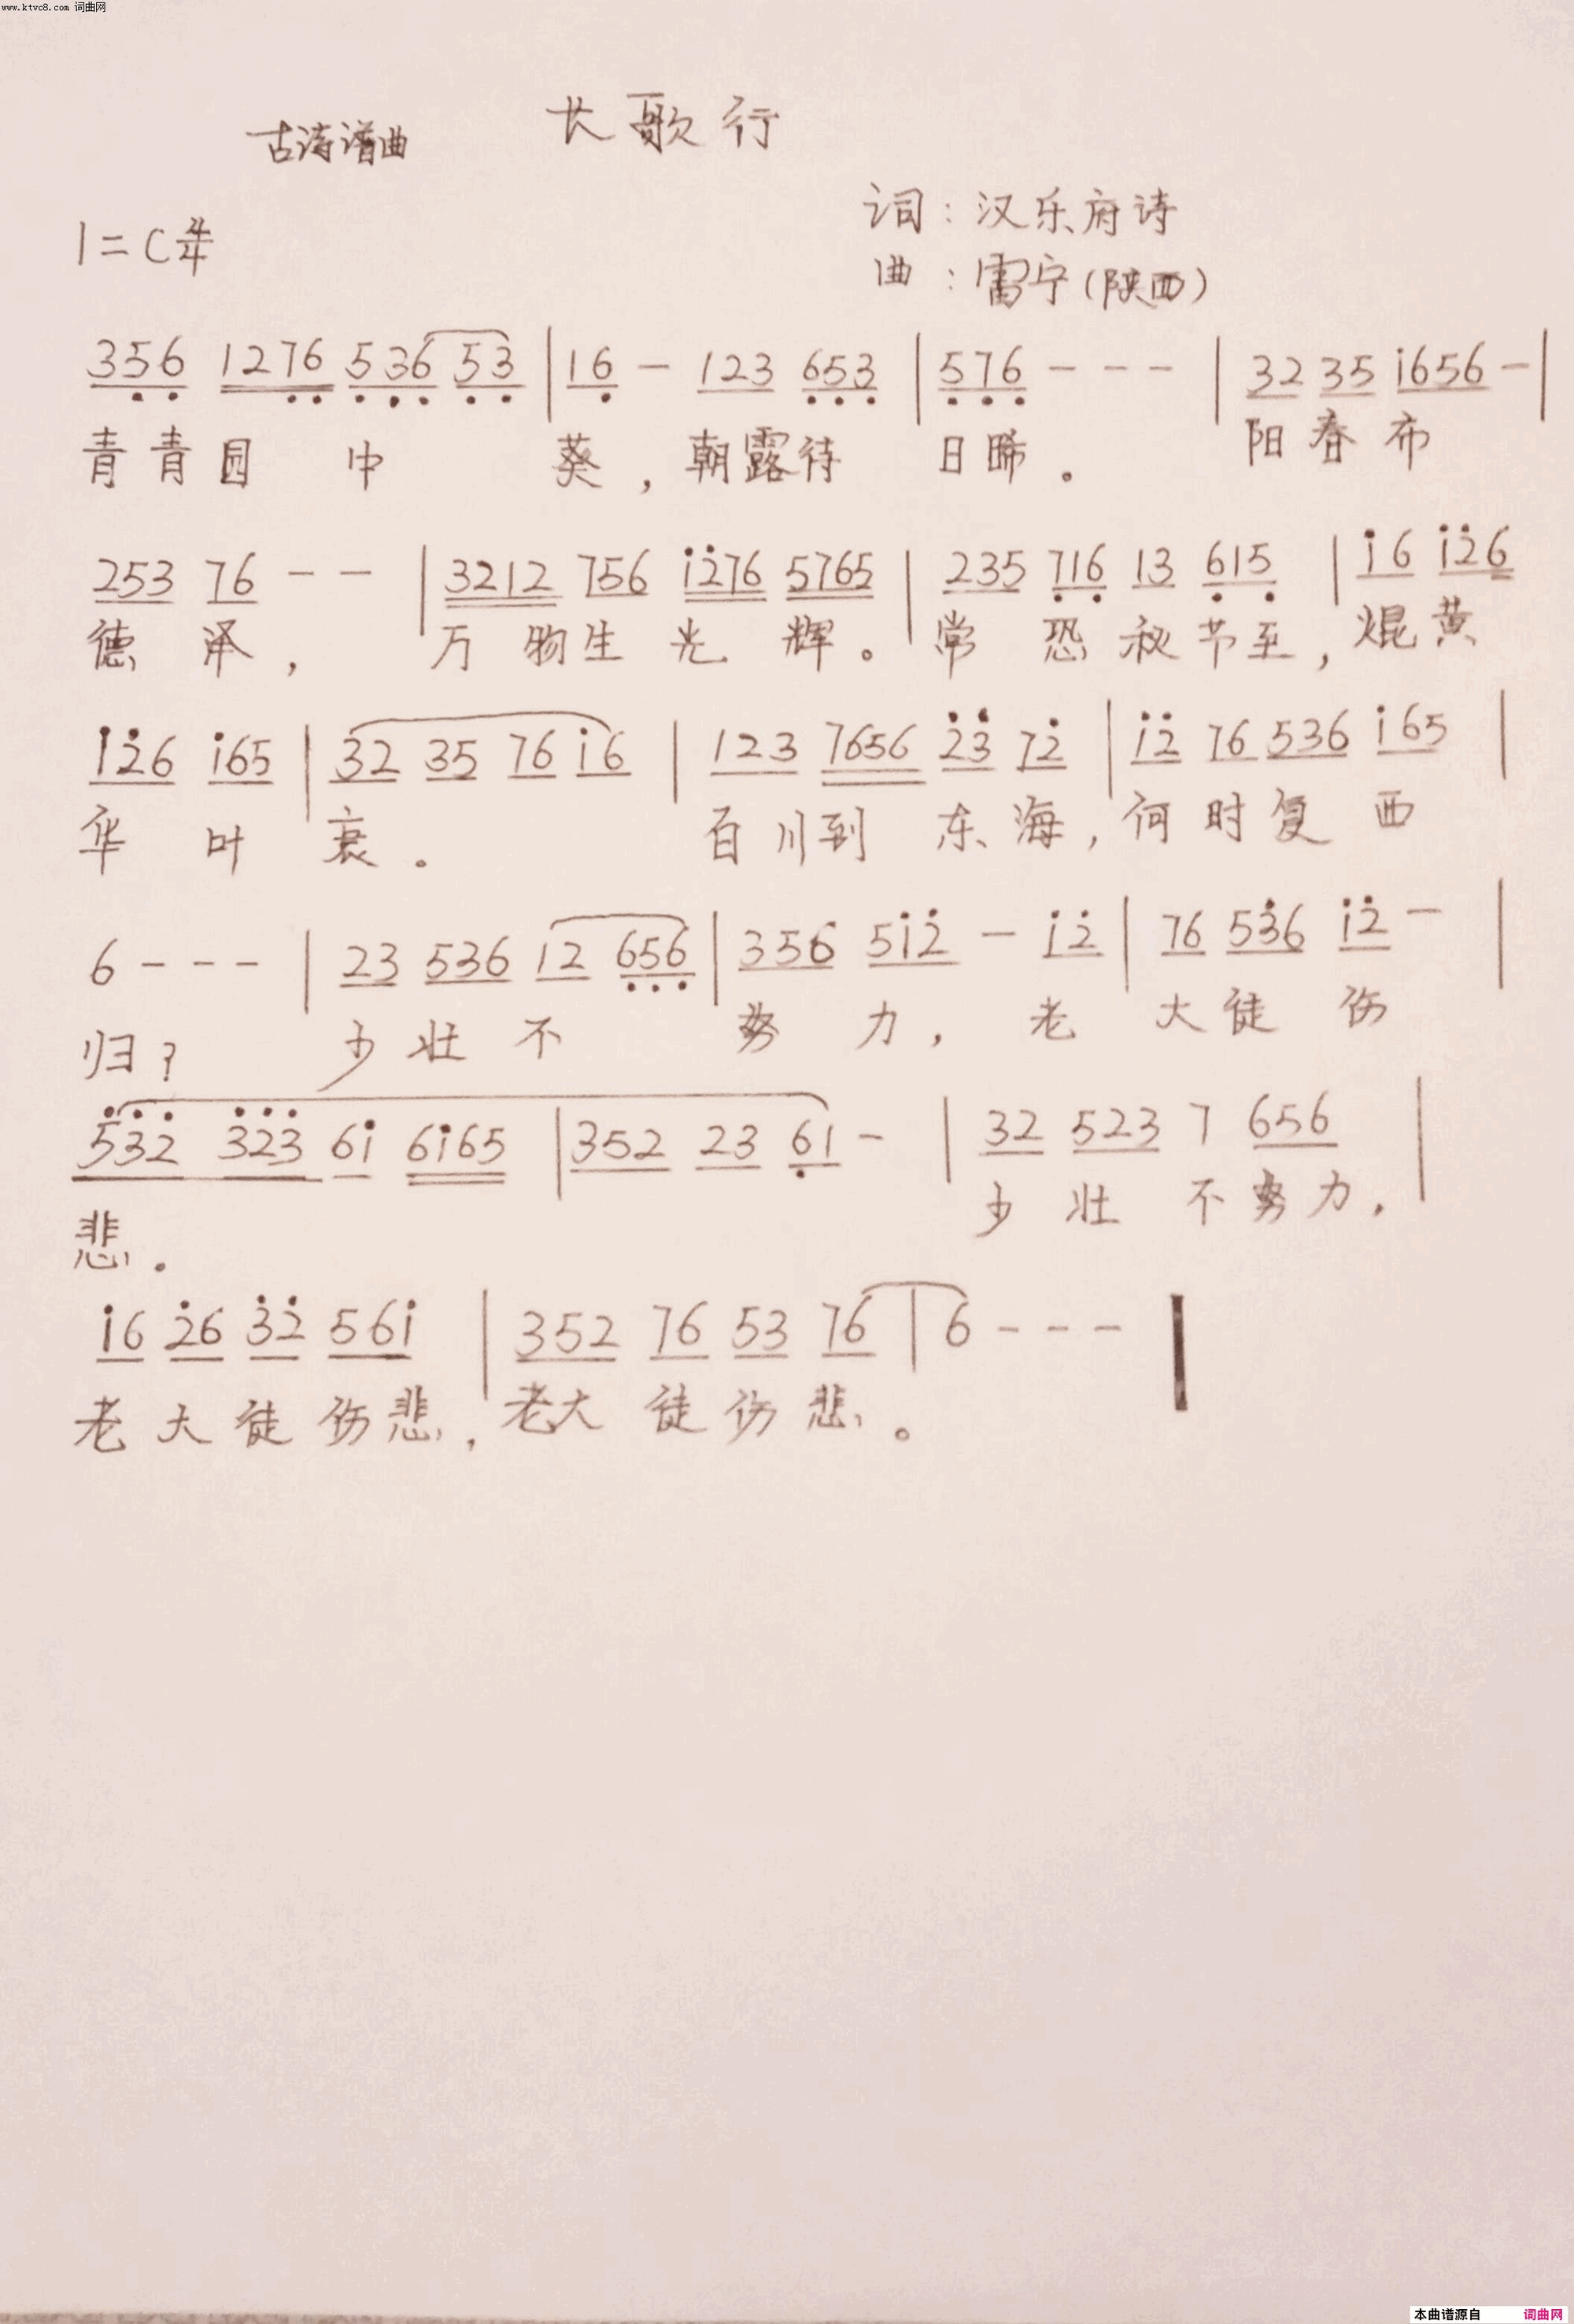 www.ktvc8.com 词曲网
古诗谱曲 长歌行
词：汉乐府诗
1=C 4/4
曲：雷宁(陕西)
356 1276 536 53 | 16 - 123 653 | 576 - - - | 32 35 i656 - |
青青园 中 葵，朝露待 日晞。 阳春布
253 76 - - | 3212 756 i̇2̇76 5765 | 235 716 13 615 | i̇6 i̇2̇6
德 泽， 万 物生 光 辉。常 恐 秋节至，焜黄
i̇2̇6 i̇65 | 32 35 76 i̇6 | 123 7656 2̇3̇ 72̇ | i̇2̇ 76 536 i̇65 |
华 叶 衰。 百川到 东海，何时复 西
6 - - - | 23 536 12 656 | 356 5i̇2̇ - i̇2̇ | 76 53̇6 i̇2̇ - |
归？ 少壮 不 努 力， 老 大徒 伤
5̇3̇2̇ 3̇2̇3̇ 6i̇ 6i̇65 | 352 23 61 - | 32 523 7 656 |
悲。 少 壮 不努力，
i̇6 2̇6 3̇2̇ 56i̇ | 352 76 53 76 | 6 - - -
老大徒伤悲，老大 徒伤悲。
本曲谱源自 词曲网